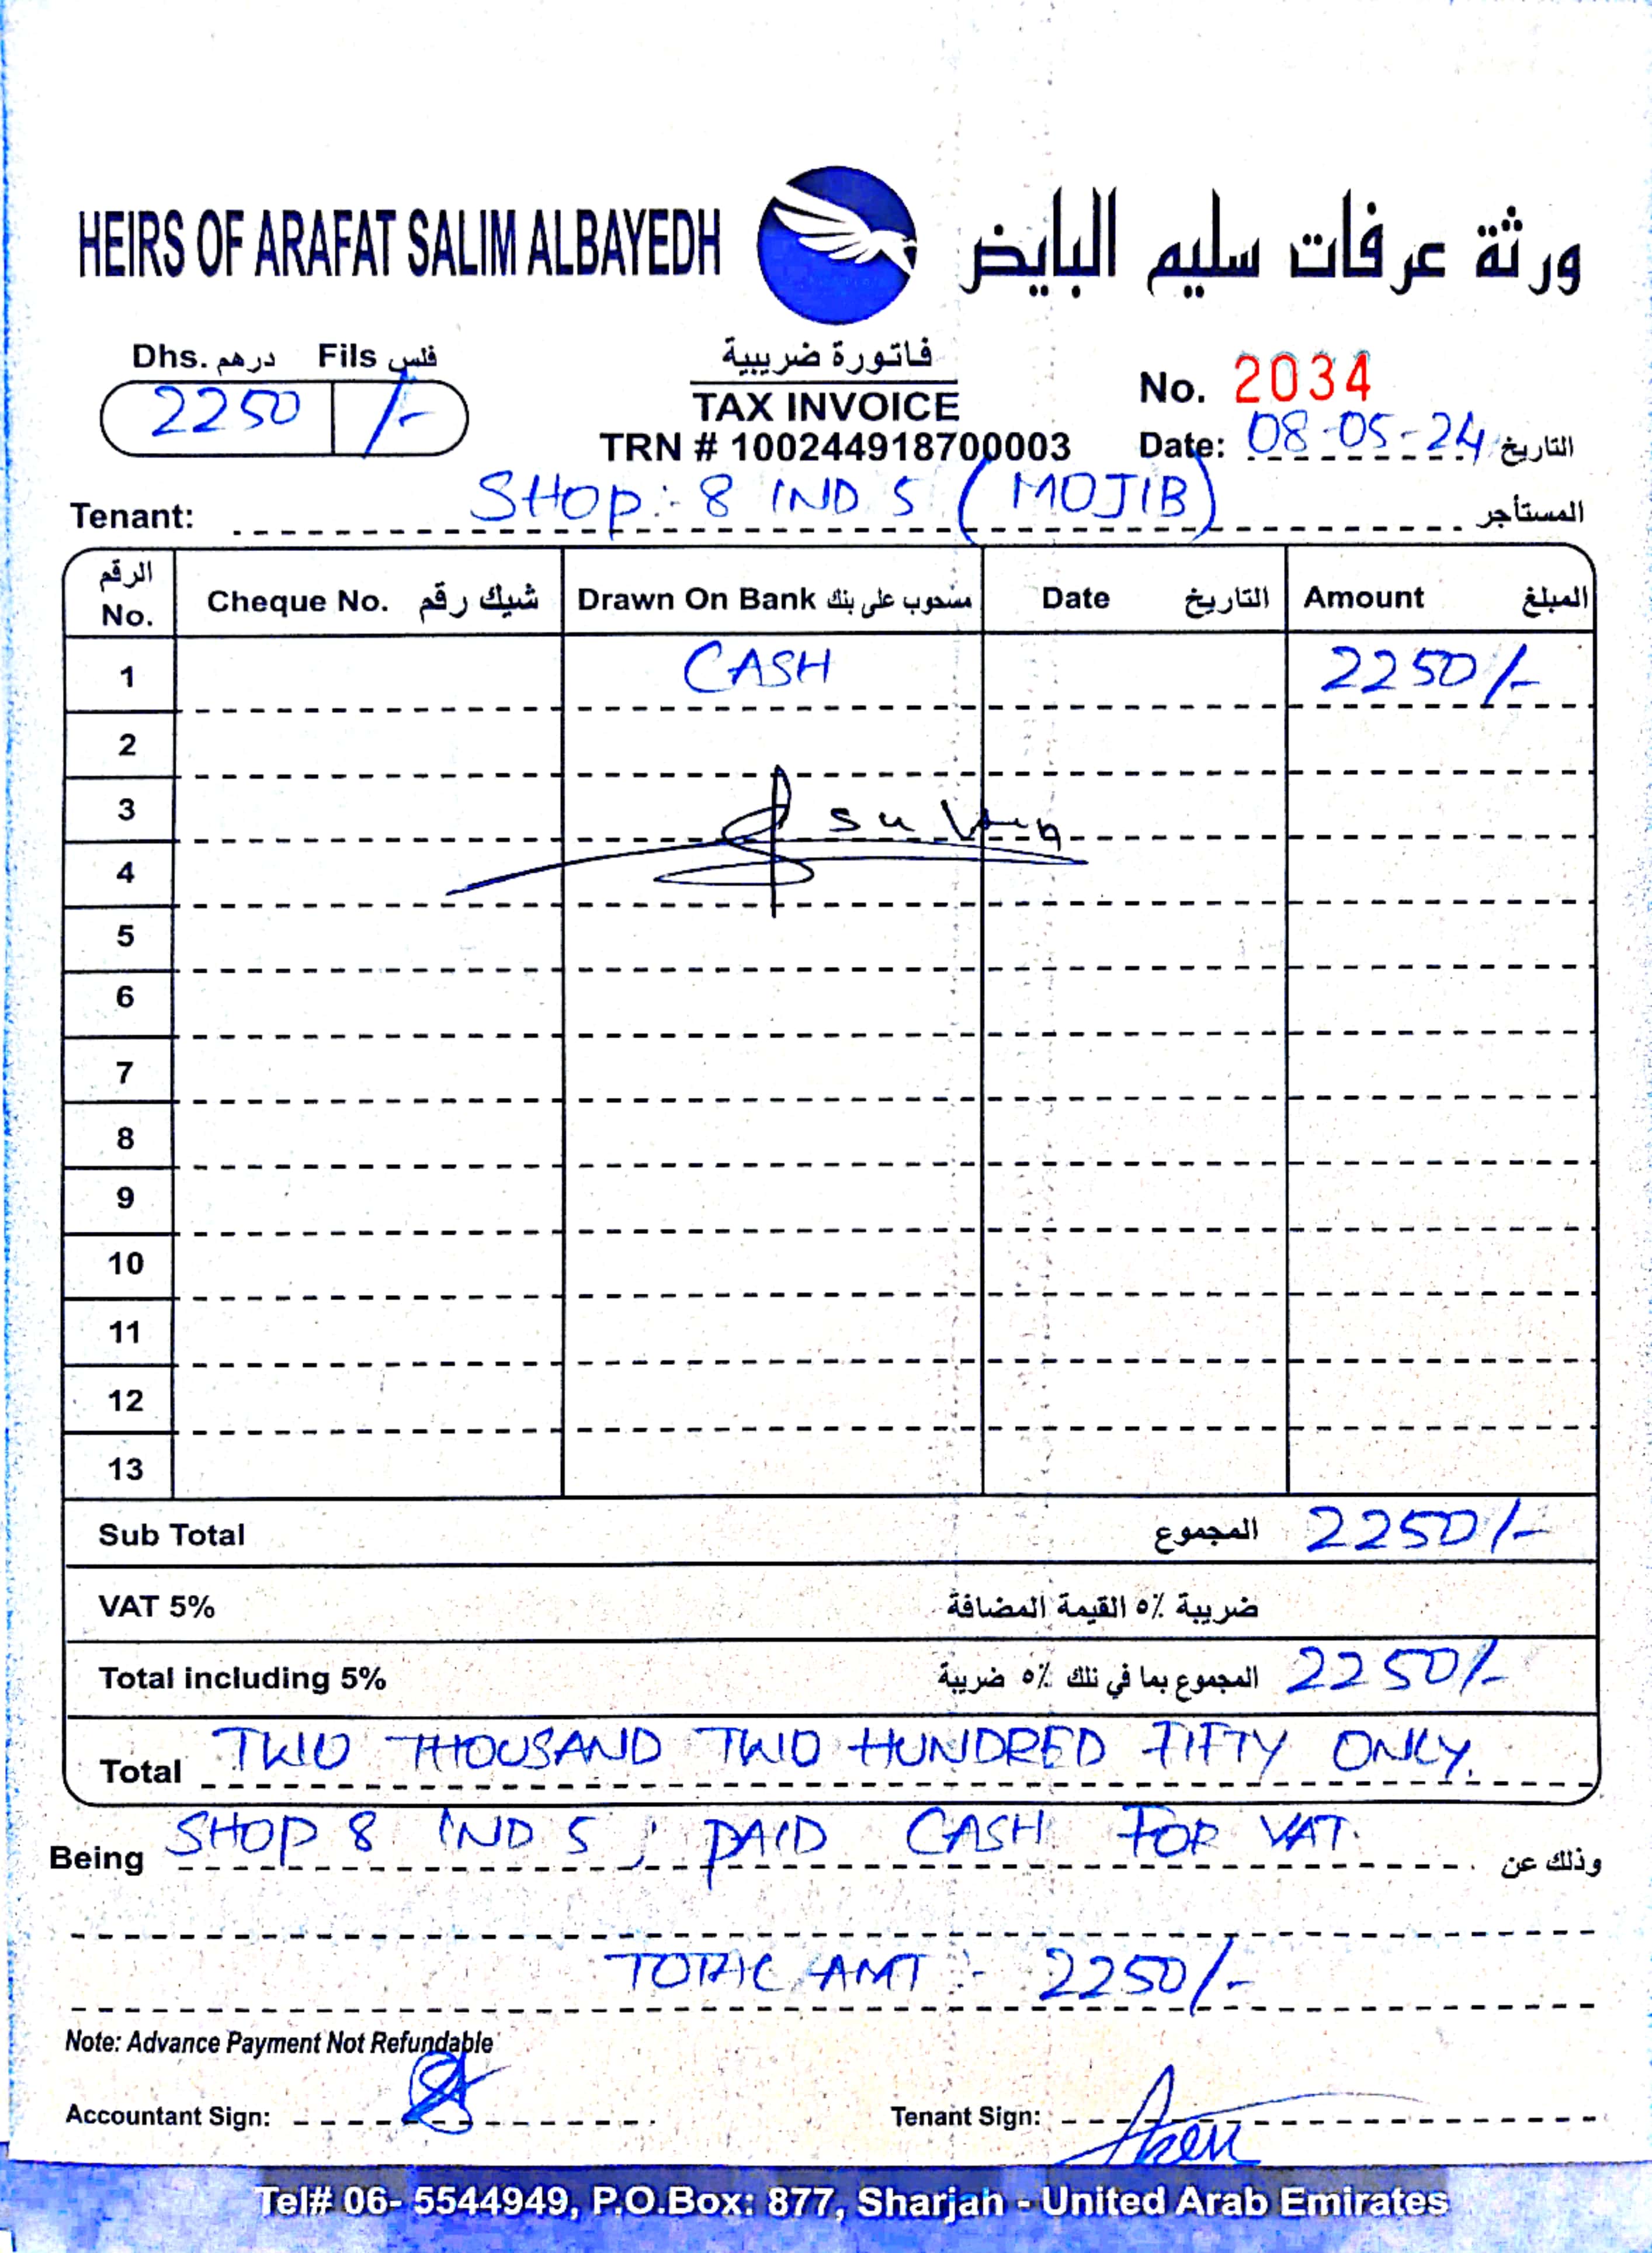 HEIRS OF ARAFAT SALIM ALBAYEDH ورثة عرفات سليم البايض
Dhs. درهم Fils فلس
2250 /-
فاتورة ضريبية
TAX INVOICE
TRN # 100244918700003
No. 2034
Date: 08-05-24 التاريخ
Tenant: SHOP:- 8 IND 5 (MOJIB) المستأجر
الرقم No. Cheque No. شيك رقم Drawn On Bank مسحوب على بنك Date التاريخ Amount المبلغ
1 CASH 2250/-
2
3
4
5
6
7
8
9
10
11
12
13
Sub Total المجموع 2250/-
VAT 5% ضريبة ٥٪ القيمة المضافة
Total including 5% المجموع بما في تلك ٥٪ ضريبة 2250/-
Total TWO THOUSAND TWO HUNDRED FIFTY ONLY.
Being SHOP 8 IND 5 ; PAID CASH FOR VAT. وذلك عن
TOTAL AMT :- 2250/-
Note: Advance Payment Not Refundable
Accountant Sign: Tenant Sign:
Tel# 06- 5544949, P.O.Box: 877, Sharjah - United Arab Emirates